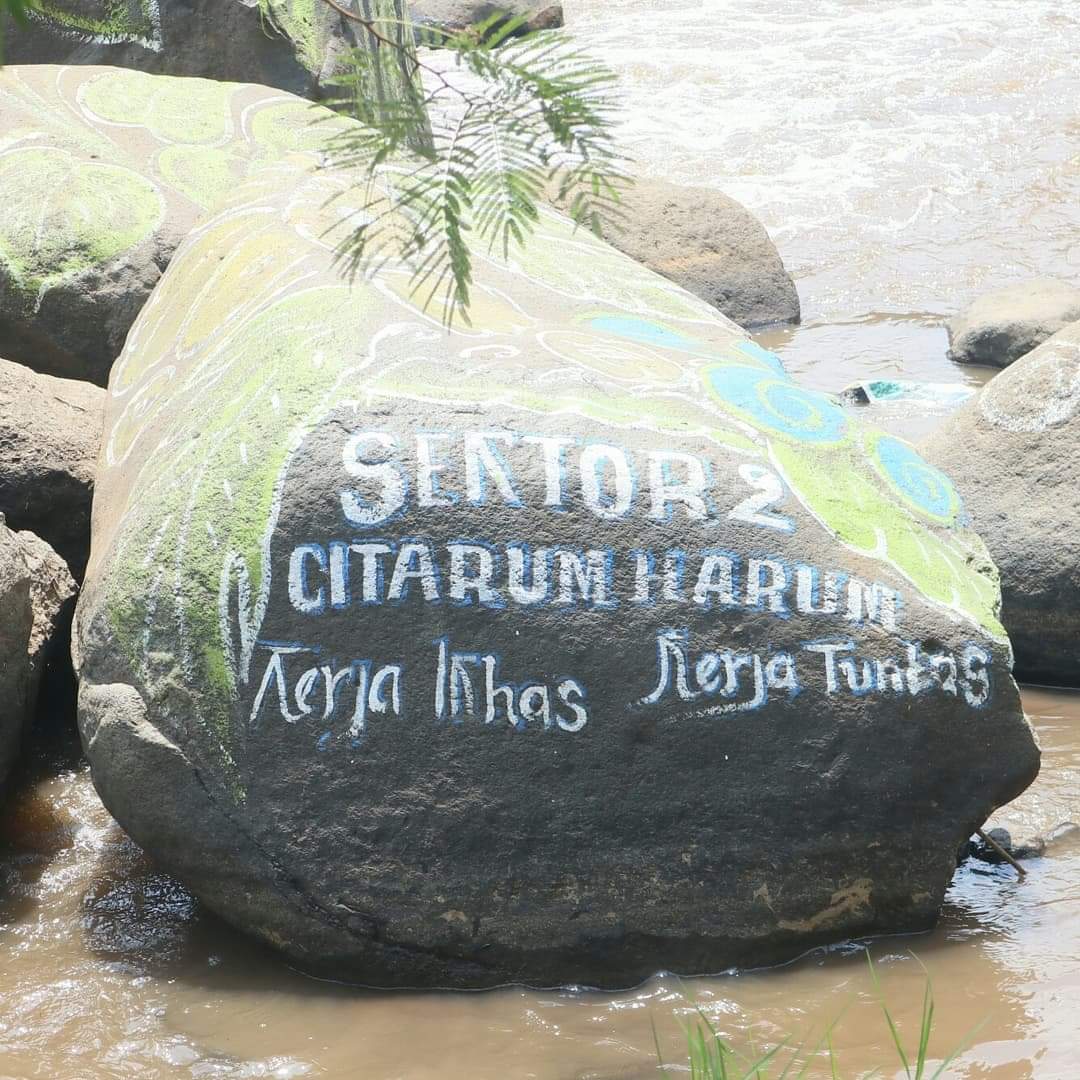 SEKTOR 2
CITARUM HARUM
Kerja Ikhas Kerja Tuntas